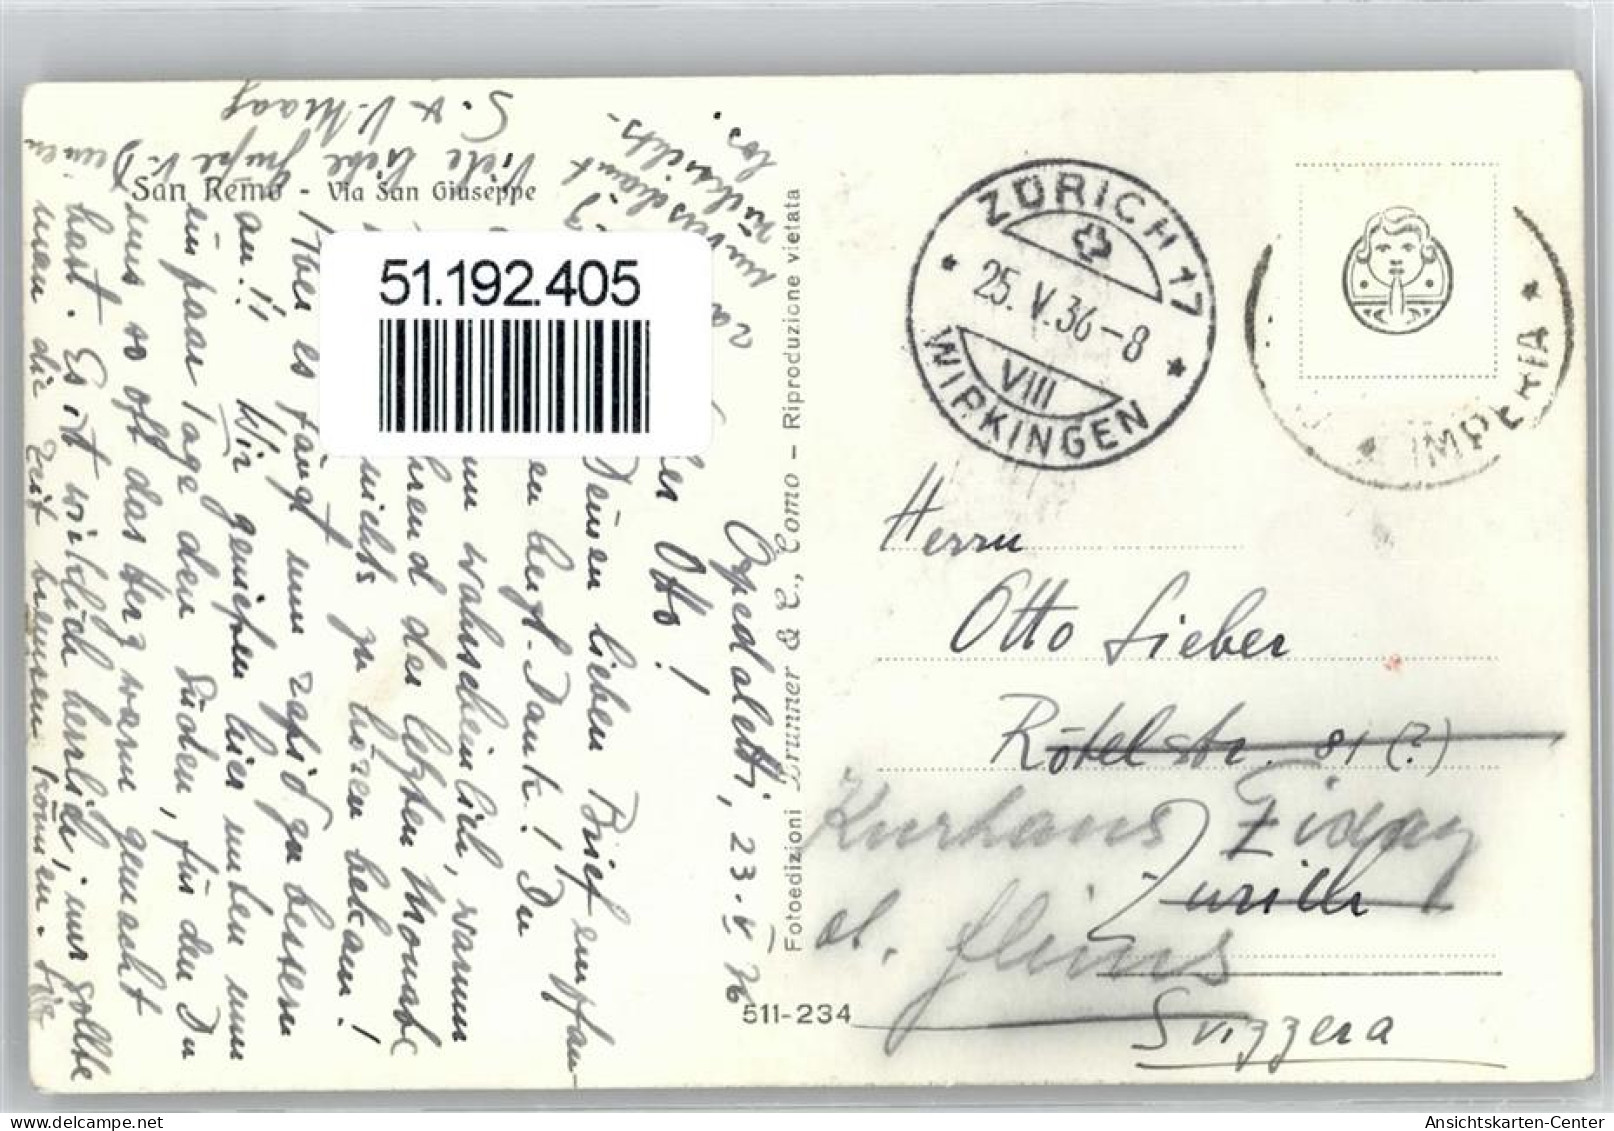 San Remo - Via San Giuseppe
51.192.405
Ospedaletti, 23. V. 36
Otto!
Deinen lieben Brief empfan-
en herzl. Dank! Du
nun wahrscheinlich, warum
hrend der letzten Monate
nichts zu hören bekam!
Aber es fängt nun rapid zu bessern
an!! Wir geniessen hier unten nun
ein paar Tage den Süden, für den Du
uns so oft das Herz warm gemacht
hast. Es ist wirklich herrlich, nur sollte
man die Zeit bremsen können.
Viele liebe Grüsse v. Deinen
S. & V. Maag
Fotoedizioni Brunner & C., Como - Riproduzione vietata
511-234
ZÜRICH 17
25. V. 36-8
VIII
WIPKINGEN
IMPERIA
Herrn
Otto Lieber
Rötelstr. 81 (?)
Kurhaus Fidaz
Zürich
ob. Flims
Svizzera
Ansichtskarten-Center